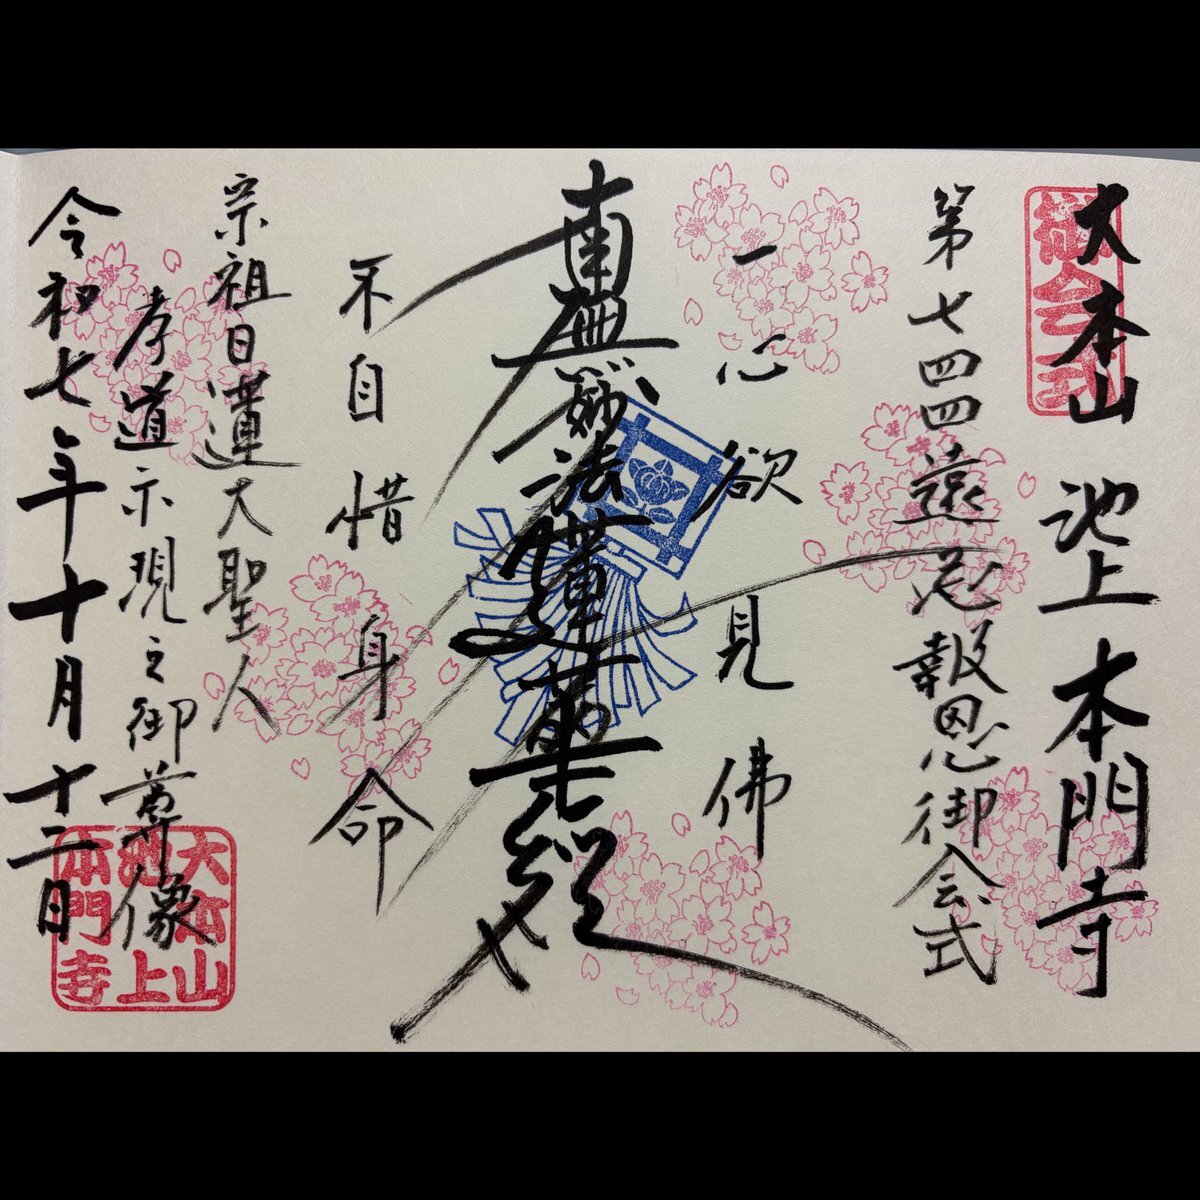 大本山 池上 本門寺
御会式
第七四四遠忌報恩御会式
一心欲見佛
南無妙法蓮華経
不自惜身命
宗祖日蓮大聖人
孝道示現之御尊像
令和七年十月十二日
大本山
池上
本門寺